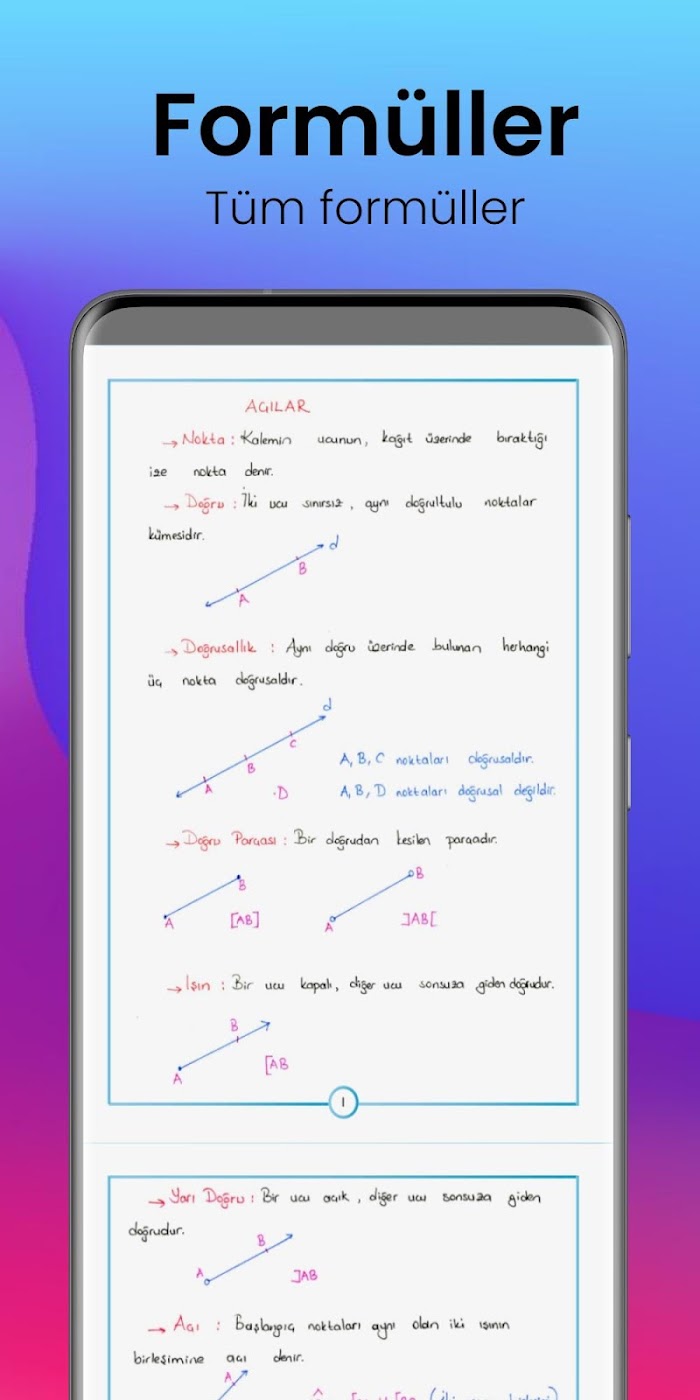 Formüller
Tüm formüller
AÇILAR
→ Nokta : Kalemin ucunun, kağıt üzerinde bıraktığı
ize nokta denir.
→ Doğru : İki ucu sınırsız, aynı doğrultulu noktalar
kümesidir.
d
B
A
→ Doğrusallık : Aynı doğru üzerinde bulunan herhangi
üç nokta doğrusaldır.
d
C
B
A
.D
A, B, C noktaları doğrusaldır.
A, B, D noktaları doğrusal değildir.
→ Doğru Parçası : Bir doğrudan kesilen parçadır.
B
A
[AB]
B
A
]AB[
→ Işın : Bir ucu kapalı, diğer ucu sonsuza giden doğrudur.
B
A
[AB
1
→ Yarı Doğru : Bir ucu açık, diğer ucu sonsuza giden
doğrudur.
B
A
]AB
→ Açı : Başlangıç noktaları aynı olan iki ışının
birleşimine açı denir.
A